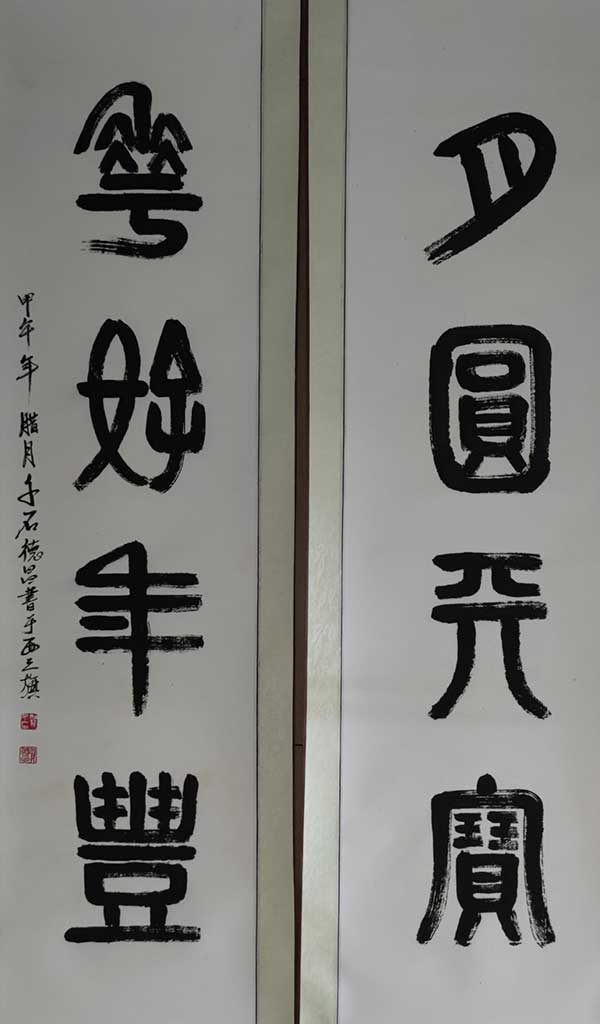 月圓天寶
華好年豐
甲午年 腊月千石德昌書于西三旗